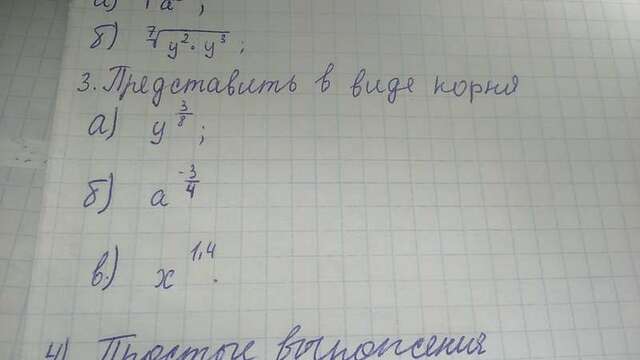 б) ⁷√y²·y³ ;
3. Представить в виде корня
а) y^3/8 ;
б) a^-3/4
в.) x^1,4 .
4) Простые